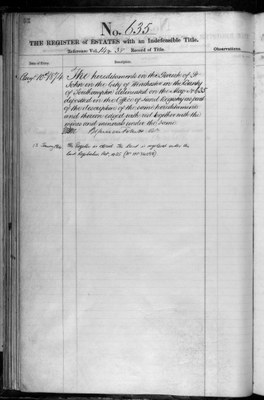 52
No. 635
THE REGISTER of ESTATES with an Indefeasible Title.
Reference Vol. Pa. 38 Record of Title.
Observations.
Date of Entry.
Description.
Augt 10th 1874 The hereditaments in the Parish of St
John in the City of Winchester in the County
of Southampton delineated on the Map No 635
deposited in the Office of Land Registry as part
of the description of the same hereditaments
and thereon edged with red together with the
mines and minerals under the same
The Register is closed. The Land is registered under the
Land Registration Act, 1925